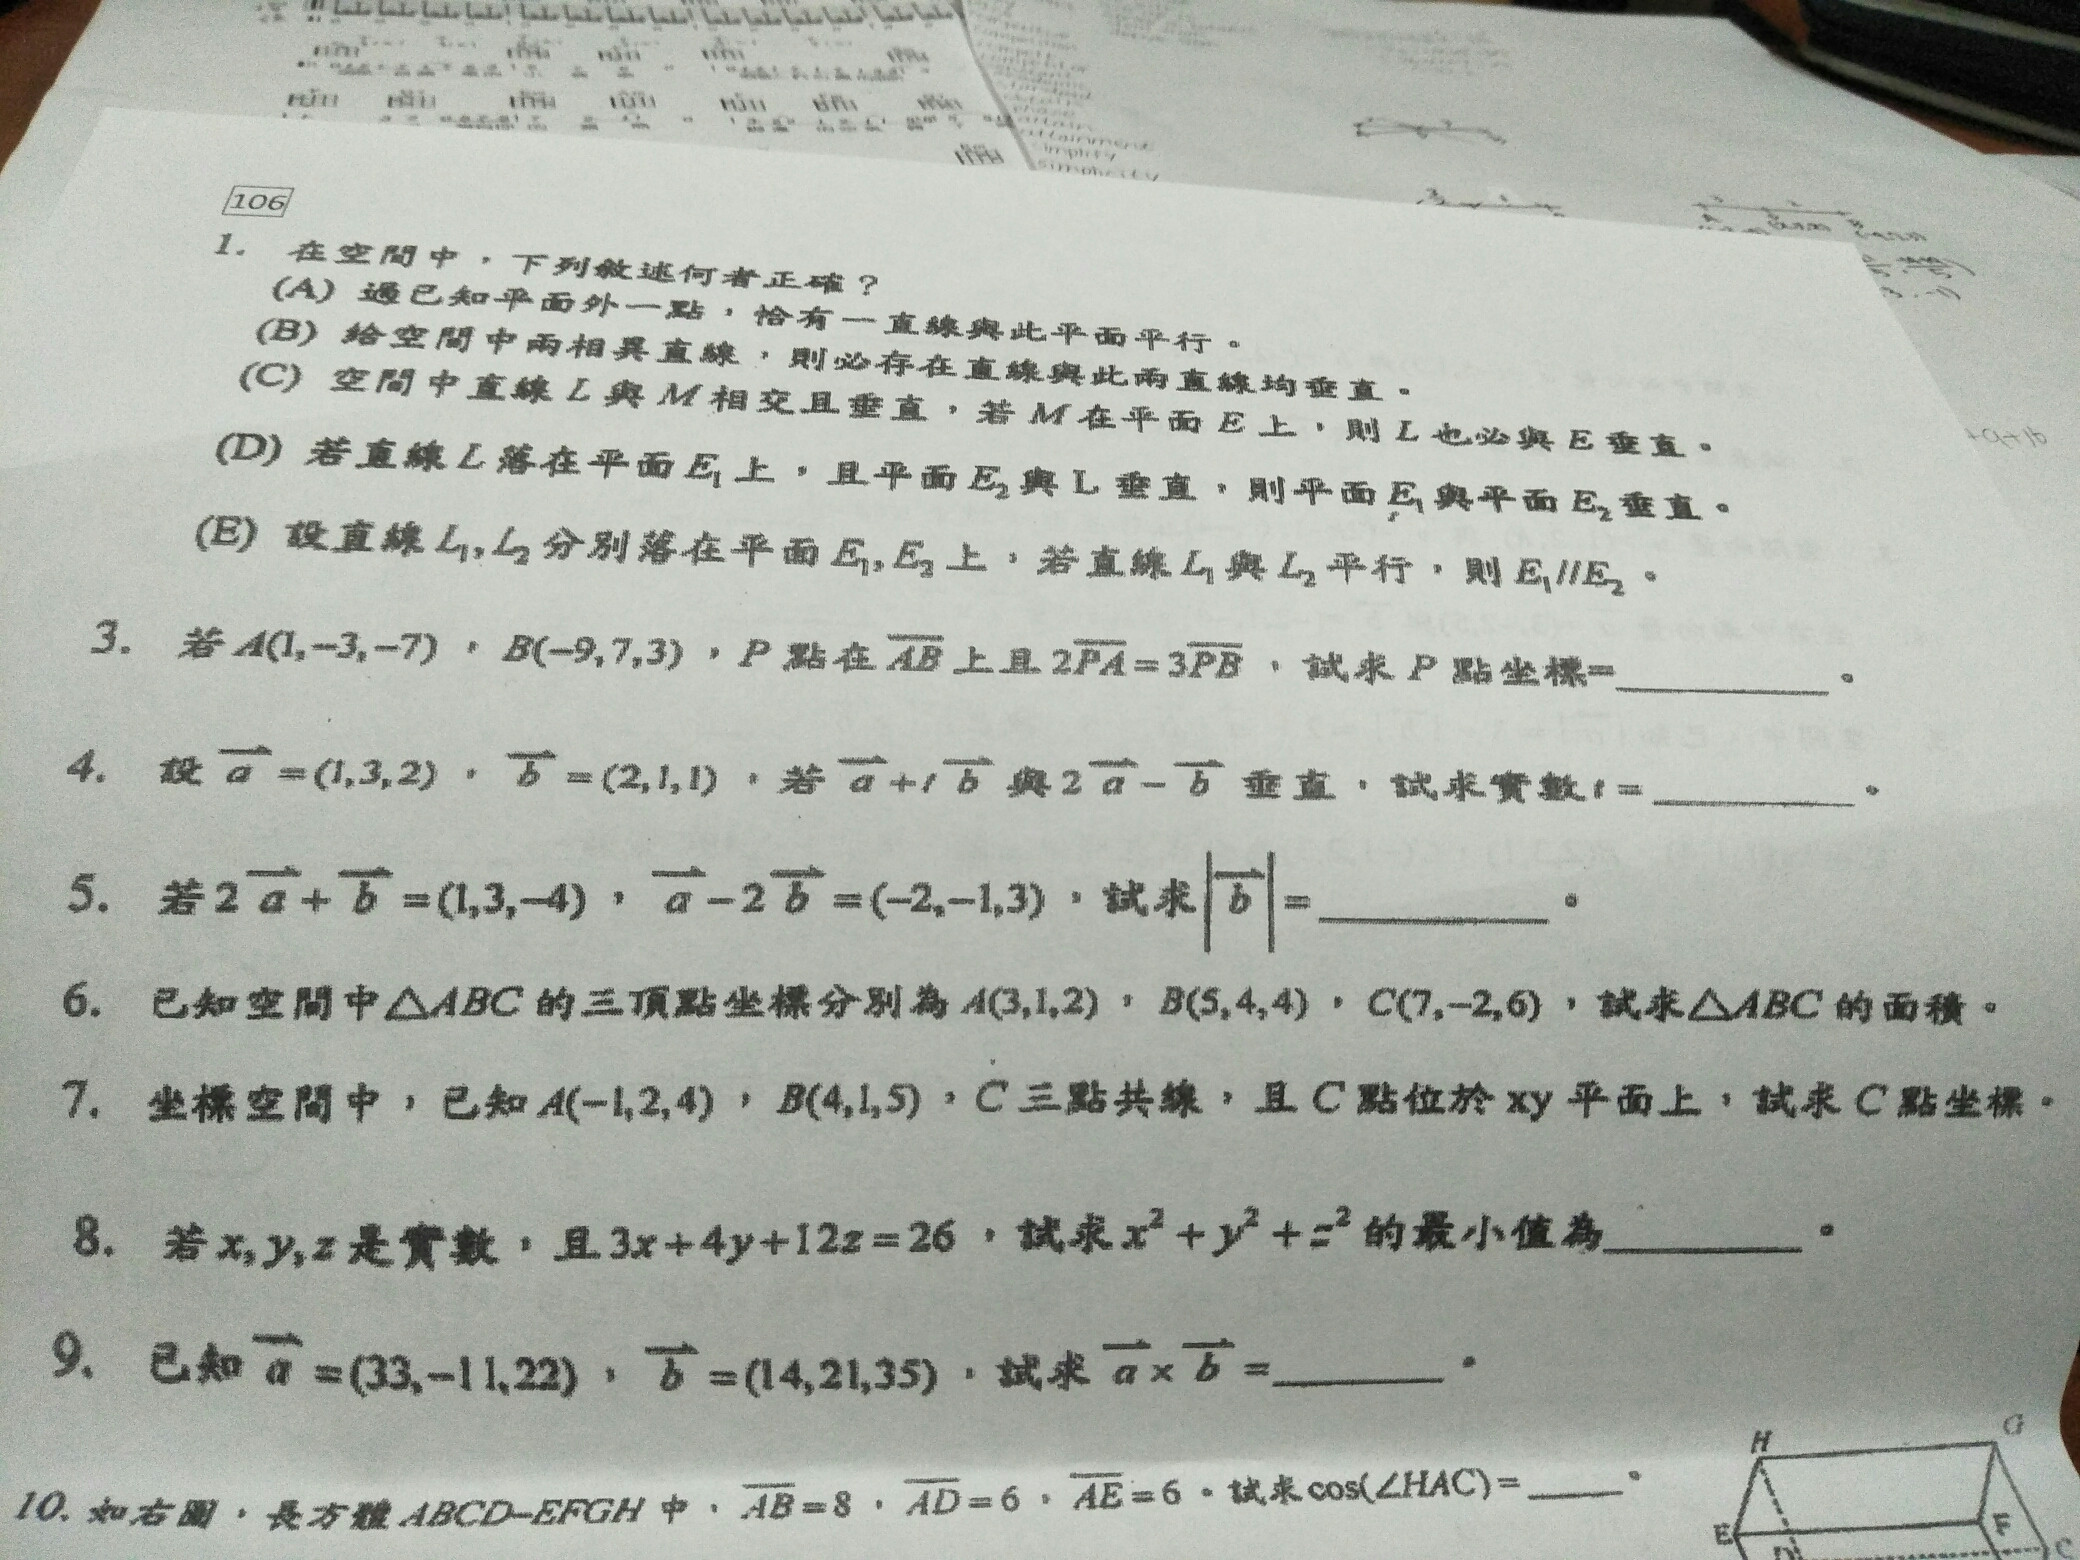 attainment
simplify
simplicity
106
1. 在空間中，下列敘述何者正確？
(A) 過已知平面外一點，恰有一直線與此平面平行。
(B) 給空間中兩相異直線，則必存在直線與此兩直線均垂直。
(C) 空間中直線 L 與 M 相交且垂直，若 M 在平面 E 上，則 L 也必與 E 垂直。
(D) 若直線 L 落在平面 E₁ 上，且平面 E₂ 與 L 垂直，則平面 E₁ 與平面 E₂ 垂直。
(E) 設直線 L₁, L₂ 分別落在平面 E₁, E₂ 上，若直線 L₁ 與 L₂ 平行，則 E₁//E₂。
3. 若 A(1,−3,−7)，B(−9,7,3)，P 點在 \overline{AB} 上且 2\overline{PA}=3\overline{PB}，試求 P 點坐標=________。
4. 設 \vec{a}=(1,3,2)，\vec{b}=(2,1,1)，若 \vec{a}+t\vec{b} 與 2\vec{a}−\vec{b} 垂直，試求實數 t=________。
5. 若 2\vec{a}+\vec{b}=(1,3,−4)，\vec{a}−2\vec{b}=(−2,−1,3)，試求|\vec{b}|=________。
6. 已知空間中△ABC 的三頂點坐標分別為 A(3,1,2)，B(5,4,4)，C(7,−2,6)，試求△ABC 的面積。
7. 坐標空間中，已知 A(−1,2,4)，B(4,1,5)，C 三點共線，且 C 點位於 xy 平面上，試求 C 點坐標。
8. 若 x, y, z 是實數，且 3x+4y+12z=26，試求 x²+y²+z² 的最小值為________。
9. 已知 \vec{a}=(33,−11,22)，\vec{b}=(14,21,35)，試求 \vec{a}×\vec{b}=________。
10. 如右圖，長方體 ABCD−EFGH 中，\overline{AB}=8，\overline{AD}=6，\overline{AE}=6。試求 cos(∠HAC)=____。
H G
E F
D C